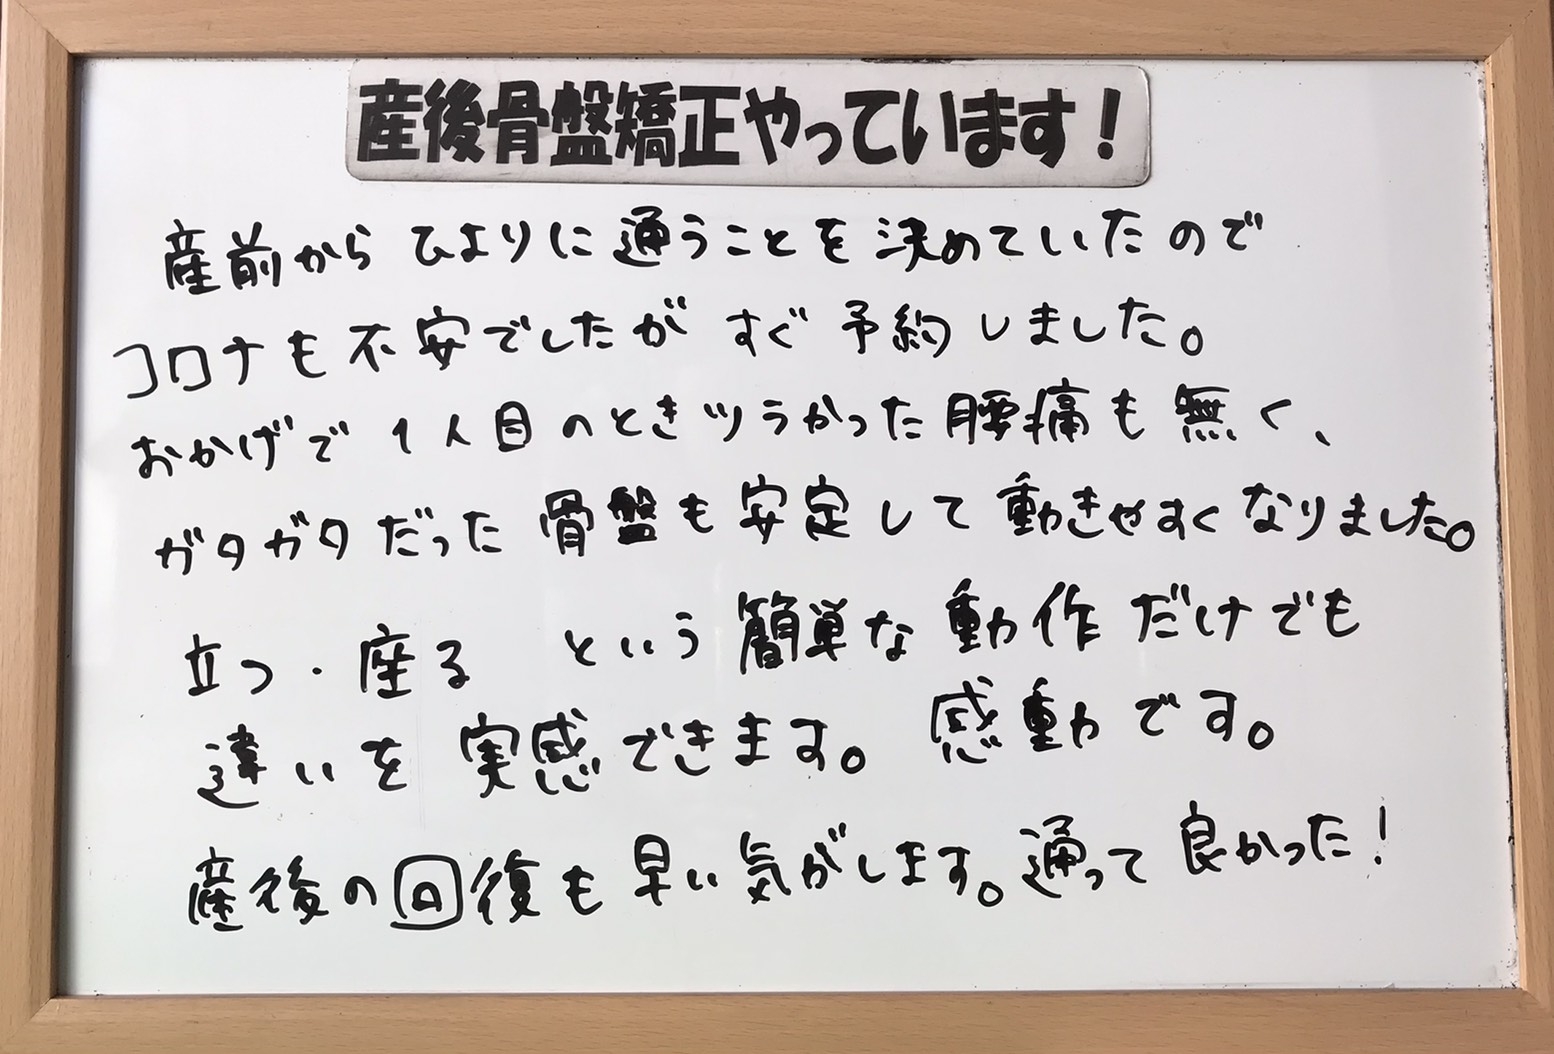 産後骨盤矯正やっています！
産前から ひよりに 通うことを 決めていたので
コロナも 不安でしたが すぐ 予約しました。
おかげで 1人目のときツラかった 腰痛も 無く、
ガタガタだった 骨盤も 安定して 動きやすくなりました。
立つ・座る という 簡単な 動作だけでも
違いを 実感できます。 感動です。
産後の回復も 早い気がします。通って 良かった！